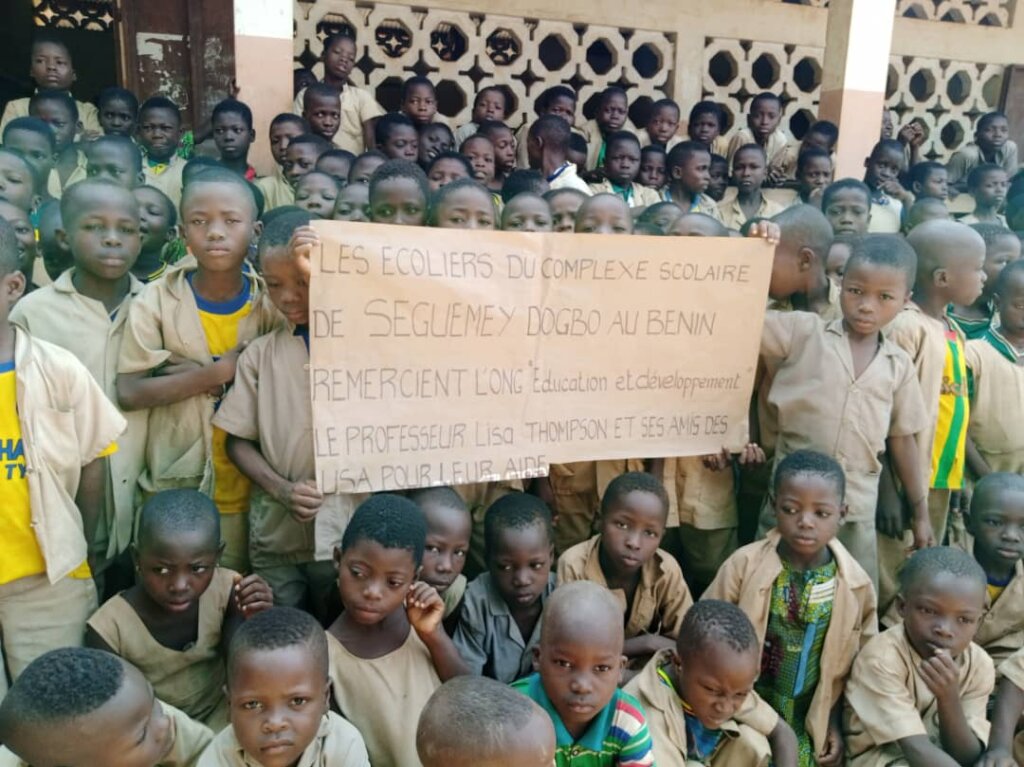 LES ECOLIERS DU COMPLEXE SCOLAIRE
DE SEGUEMEY DOGBO AU BENIN
REMERCIENT L'ONG "Education et développement"
LE PROFESSEUR Lisa THOMPSON ET SES AMIS DES
USA POUR LEUR AIDE
HA
TY